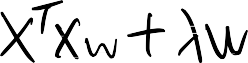 XᵀXw + λw